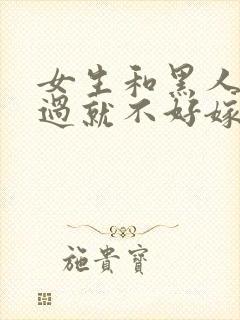 女生和黑人
過就不好嫁
施貴寶